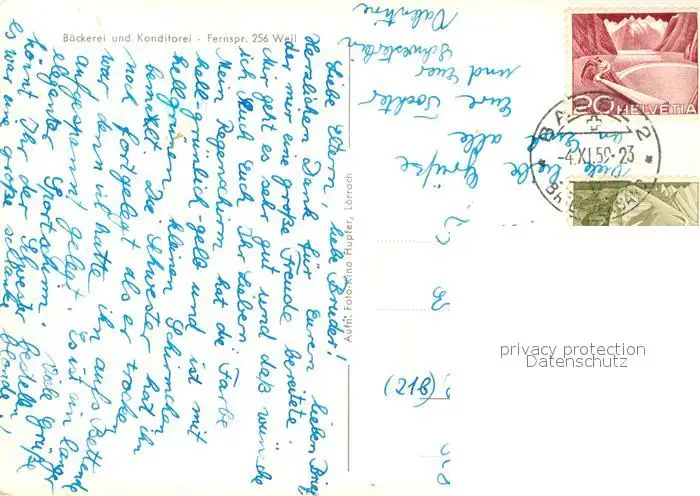 Bäckerei und Konditorei - Fernspr. 256 Weil
Liebe Eltern, liebe Brüder!
Herzlichen Dank für Euren lieben Brief,
der mir eine große Freude bereitete.
Mir geht es sehr gut und das wünsche
ich auch Euch Ihr Lieben.
Mein Regenschirm hat die Farbe
hell-grünlich-gelb und ist mit
hellgrünen kleinen Schirmchen
bemalt. Die Schwester hat ihn
noch fortgelegt als er trocken
war denn ich hatte ihn aufs Bettende
aufgespannt gelegt. Es ist ein langer
eleganter Sportschirm. Viele Grüße
könnt Ihr der Schwester bestellen
es war eine große schlanke blonde!
Viele liebe Grüße
an Euch alle
Eure Tochter
und Euer
Schwesterlein
Valentine
Aufn.: Foto-Kino Hupfer, Lörrach
(21b)
20 HELVETIA
BASEL 2
-4.XI.59-23
BRIEFVERSAND
privacy protection
Datenschutz